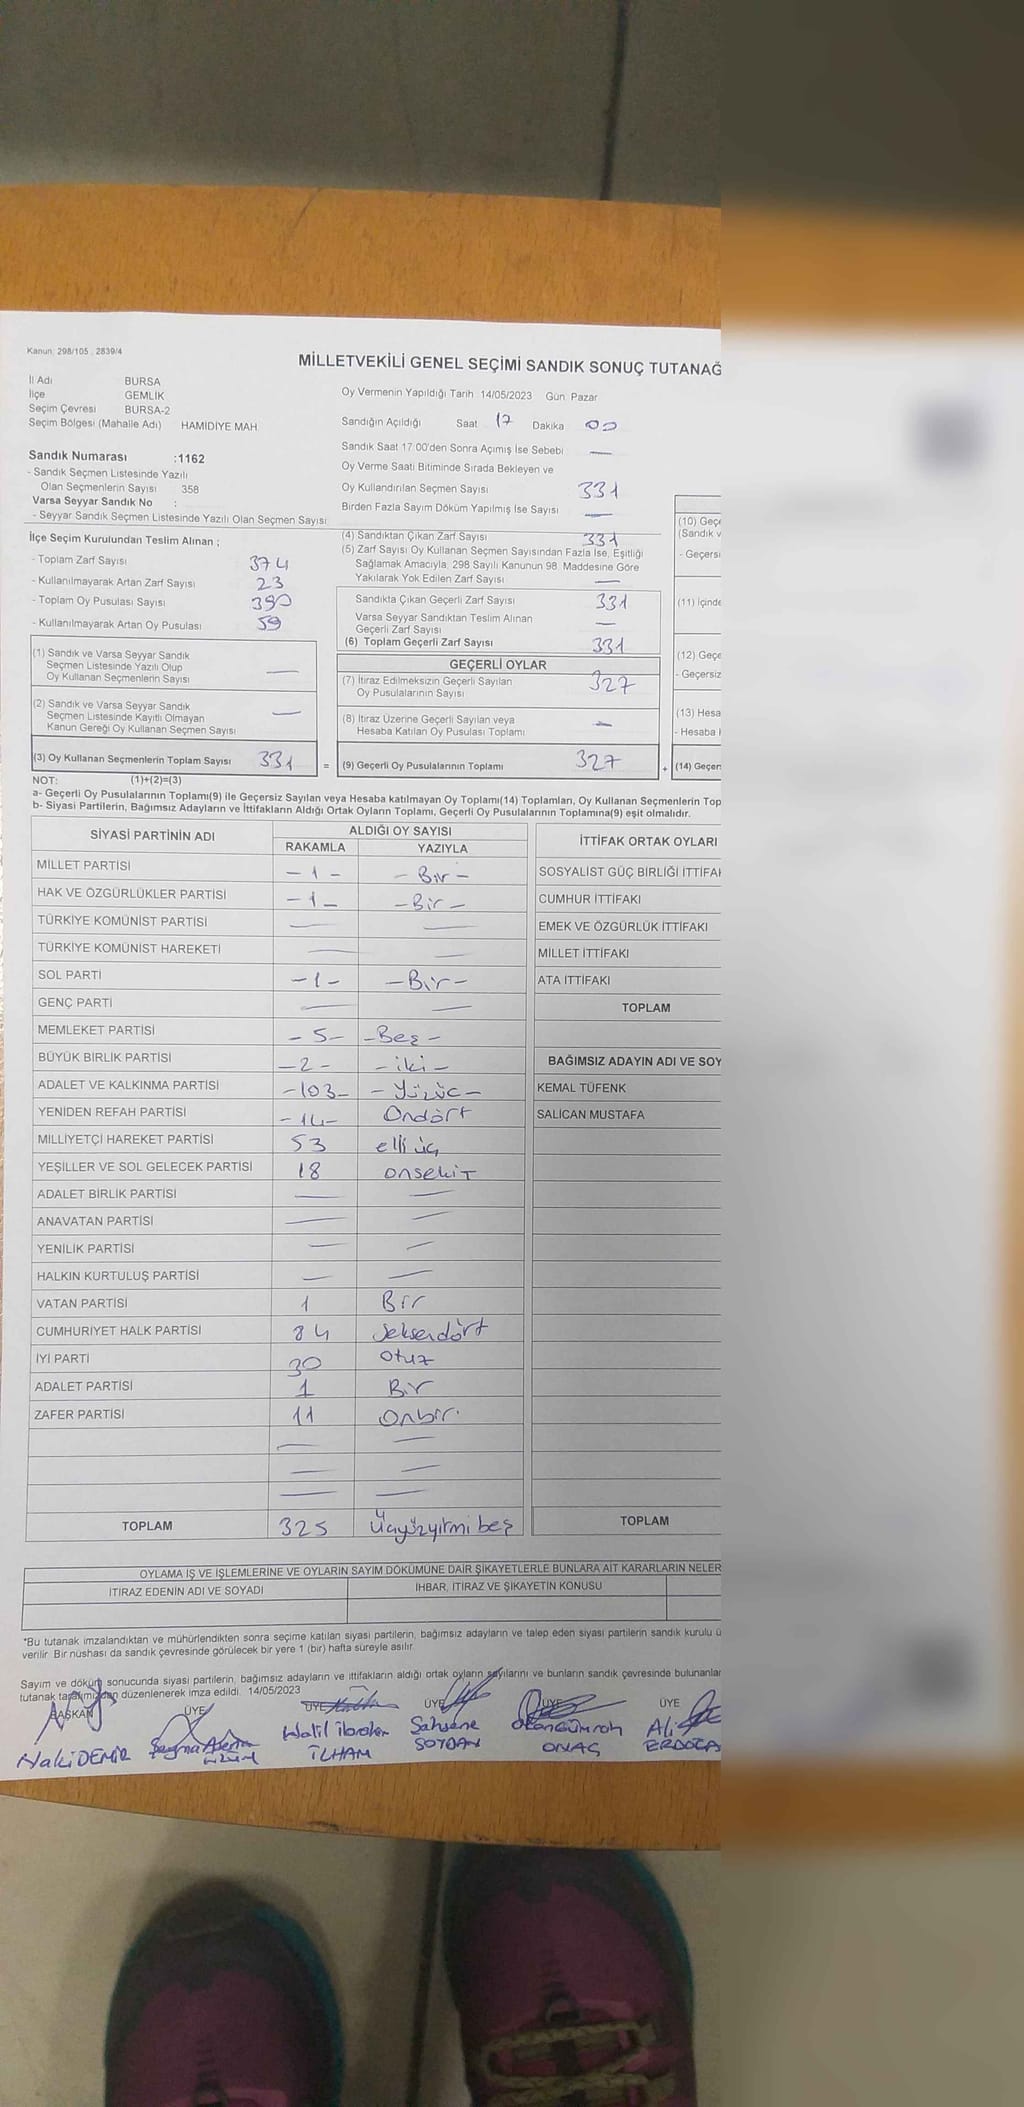 Kanun: 298/105 , 2839/4
MİLLETVEKİLİ GENEL SEÇİMİ SANDIK SONUÇ TUTANAĞ
İl Adı BURSA
İlçe GEMLİK
Seçim Çevresi BURSA-2
Seçim Bölgesi (Mahalle Adı) HAMİDİYE MAH.
Oy Vermenin Yapıldığı Tarih 14/05/2023 Gün: Pazar
Sandığın Açıldığı Saat 17 Dakika 00
Sandık Saat 17:00'den Sonra Açımış İse Sebebi —
Sandık Numarası :1162
- Sandık Seçmen Listesinde Yazılı
Olan Seçmenlerin Sayısı : 358
Varsa Seyyar Sandık No :
- Seyyar Sandık Seçmen Listesinde Yazılı Olan Seçmen Sayısı
Oy Verme Saati Bitiminde Sırada Bekleyen ve
Oy Kullandırılan Seçmen Sayısı 331
Birden Fazla Sayım Döküm Yapılmış İse Sayısı —
İlçe Seçim Kurulundan Teslim Alınan ;
- Toplam Zarf Sayısı 374
- Kullanılmayarak Artan Zarf Sayısı 23
- Toplam Oy Pusulası Sayısı 390
- Kullanılmayarak Artan Oy Pusulası 59
(4) Sandıktan Çıkan Zarf Sayısı 331
(5) Zarf Sayısı Oy Kullanan Seçmen Sayısından Fazla İse, Eşitliği
Sağlamak Amacıyla, 298 Sayılı Kanunun 98. Maddesine Göre
Yakılarak Yok Edilen Zarf Sayısı —
Sandıkta Çıkan Geçerli Zarf Sayısı 331
Varsa Seyyar Sandıktan Teslim Alınan
Geçerli Zarf Sayısı —
(6) Toplam Geçerli Zarf Sayısı 331
(1) Sandık ve Varsa Seyyar Sandık
Seçmen Listesinde Yazılı Olup
Oy Kullanan Seçmenlerin Sayısı —
(2) Sandık ve Varsa Seyyar Sandık
Seçmen Listesinde Kayıtlı Olmayan
Kanun Gereği Oy Kullanan Seçmen Sayısı —
(3) Oy Kullanan Seçmenlerin Toplam Sayısı 331 =
GEÇERLİ OYLAR
(7) İtiraz Edilmeksizin Geçerli Sayılan
Oy Pusulalarının Sayısı 327
(8) İtiraz Üzerine Geçerli Sayılan veya
Hesaba Katılan Oy Pusulası Toplamı —
(9) Geçerli Oy Pusulalarının Toplamı 327 +
(10) Geçe
(Sandık v
- Geçersi
(11) İçinde
(12) Geçe
- Geçersiz
(13) Hesa
- Hesaba k
(14) Geçer
NOT: (1)+(2)=(3)
a- Geçerli Oy Pusulalarının Toplamı(9) ile Geçersiz Sayılan veya Hesaba katılmayan Oy Toplamı(14) Toplamları, Oy Kullanan Seçmenlerin Top
b- Siyasi Partilerin, Bağımsız Adayların ve İttifakların Aldığı Ortak Oyların Toplamı, Geçerli Oy Pusulalarının Toplamına(9) eşit olmalıdır.
SİYASİ PARTİNİN ADI ALDIĞI OY SAYISI
RAKAMLA YAZIYLA
MİLLET PARTİSİ - 1 - - Bir -
HAK VE ÖZGÜRLÜKLER PARTİSİ - 1 - - Bir -
TÜRKİYE KOMÜNİST PARTİSİ — —
TÜRKİYE KOMÜNİST HAREKETİ — —
SOL PARTİ - 1 - - Bir -
GENÇ PARTİ — —
MEMLEKET PARTİSİ - 5 - - Beş -
BÜYÜK BİRLİK PARTİSİ - 2 - - iki -
ADALET VE KALKINMA PARTİSİ - 103 - - Yüzüç -
YENİDEN REFAH PARTİSİ - 14 - Ondört
MİLLİYETÇİ HAREKET PARTİSİ 53 elli üç
YEŞİLLER VE SOL GELECEK PARTİSİ 18 onsekiz
ADALET BİRLİK PARTİSİ — —
ANAVATAN PARTİSİ — —
YENİLİK PARTİSİ — —
HALKIN KURTULUŞ PARTİSİ — —
VATAN PARTİSİ 1 Bir
CUMHURİYET HALK PARTİSİ 84 Seksendört
İYİ PARTİ 30 otuz
ADALET PARTİSİ 1 Bir
ZAFER PARTİSİ 11 Onbir
TOPLAM 325 Üçyüzyirmi beş
İTTİFAK ORTAK OYLARI
SOSYALİST GÜÇ BİRLİĞİ İTTİFAK
CUMHUR İTTİFAKI
EMEK VE ÖZGÜRLÜK İTTİFAKI
MİLLET İTTİFAKI
ATA İTTİFAKI
TOPLAM
BAĞIMSIZ ADAYIN ADI VE SOY
KEMAL TÜFENK
SALİCAN MUSTAFA
TOPLAM
OYLAMA İŞ VE İŞLEMLERİNE VE OYLARIN SAYIM DÖKÜMÜNE DAİR ŞİKAYETLERLE BUNLARA AİT KARARLARIN NELER
İTİRAZ EDENİN ADI VE SOYADI İHBAR, İTİRAZ VE ŞİKAYETİN KONUSU
*Bu tutanak imzalandıktan ve mühürlendikten sonra seçime katılan siyasi partilerin, bağımsız adayların ve talep eden siyasi partilerin sandık kurulu ü
verilir. Bir nüshası da sandık çevresinde görülecek bir yere 1 (bir) hafta süreyle asılır.
Sayım ve döküm sonucunda siyasi partilerin, bağımsız adayların ve ittifakların aldığı ortak oyların sayılarını ve bunların sandık çevresinde bulunanlar
tutanak tarafımızdan düzenlenerek imza edildi. 14/05/2023
BAŞKAN ÜYE ÜYE ÜYE ÜYE ÜYE
Naki DEMİR
Halil ibrahim İLHAM
Şahsene SOYDAN
ONAÇ
Ali ERDOĞA